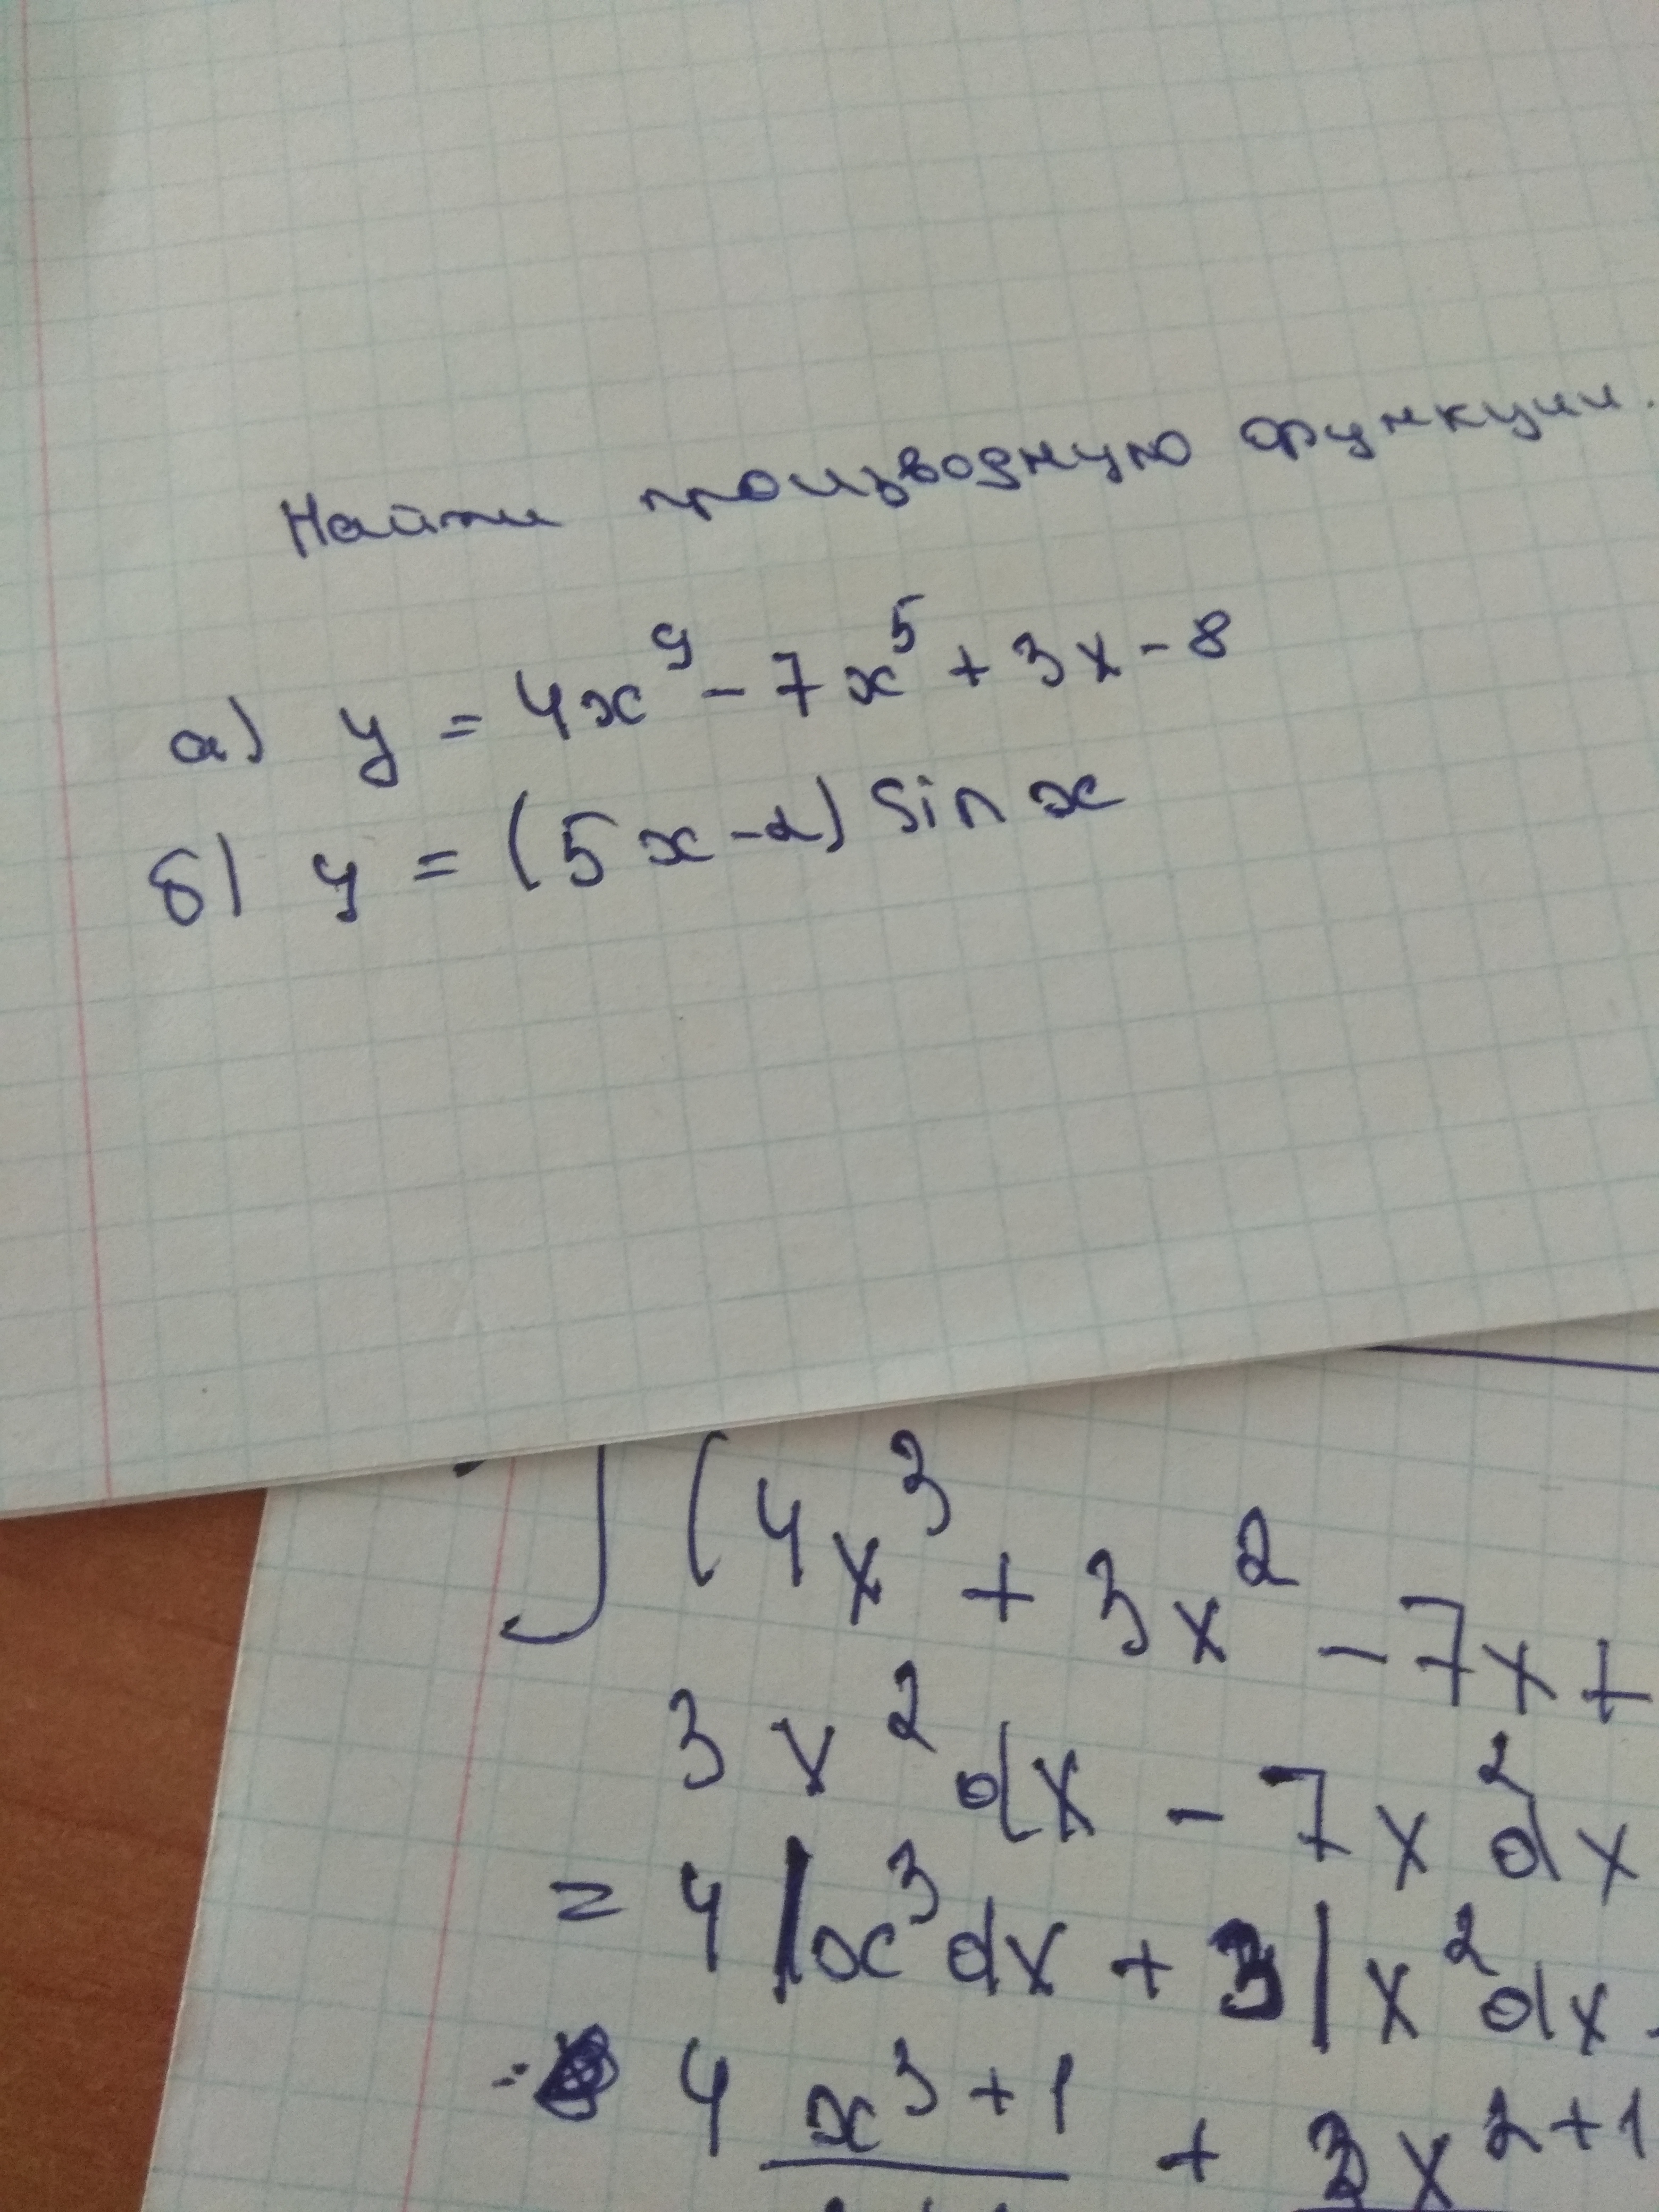 Найти производную функции.
а) y = 4x⁹ - 7x⁵ + 3x - 8
б) y = (5x - 2) sin x
∫ (4x³ + 3x² - 7x +
3x² dx - 7x² dx
= 4 ∫x³dx + 3 ∫x²dx -
4 x³⁺¹ + 3x²⁺¹